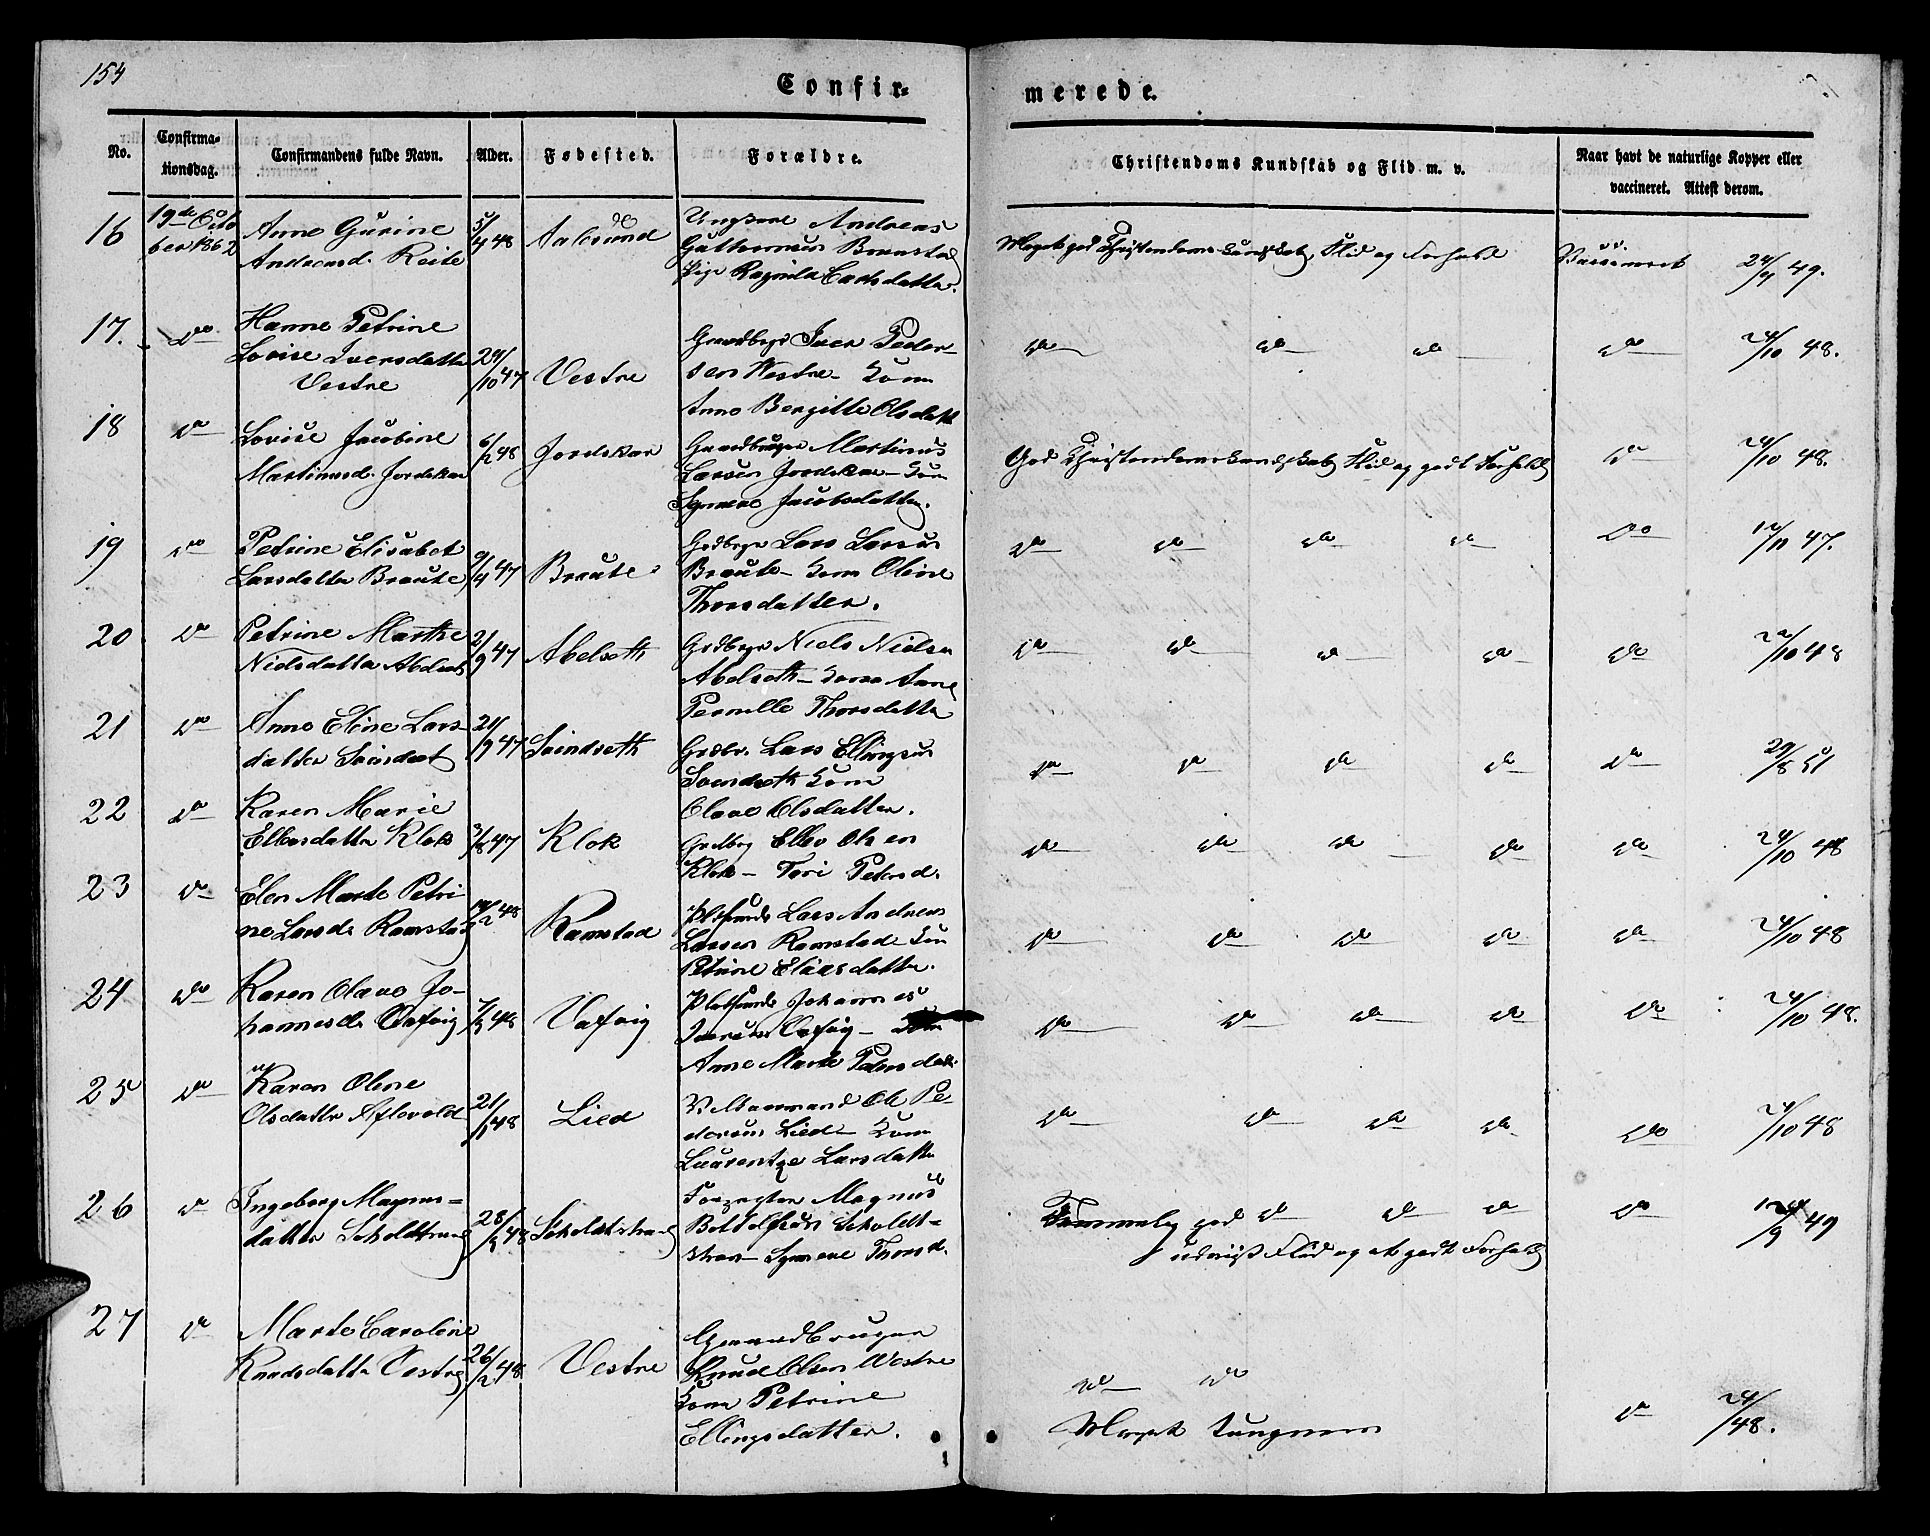 154
Confir-
merede.
No.
Confirma-
tionsdag.
Confirmandens fulde Navn.
Alder.
Fødested.
Forældre.
Christendoms Kundskab og Flid m. v.
Naar havt de naturlige Kopper eller
vaccineret. Attest derom.
16
19de Octo
ber 1862
Anne Gurine
Andreasd. Reite
5/4 48
Aalesund
Ungkarl Andreas
Guttormsen
Pige Ragnilda Carlsdatter.
Meget god Christendomskundskab, Flid og Forhold
Vaccineret
24/9 49.
17.
do
Hanne Petrine
Lovise Iversdatter
Vestre
29/10 47
Vestre
Gaardbrgr Iver Peder-
sen Westre - Kone
Anne Bergitte Olsdatt
do do do
do
24/10 48.
18
do
Lovise Jacobine
Martinusd. Jordskar
6/2 48
Jordskar
Gaardbruger Martinus
Larsen Jordskar - Kone
Synneve Jacobsdatter.
God Christendomskundskab, Flid og godt Forhold
do
24/10 48.
19
do
Petrine Elisabet
Larsdatter Braute
9/4 47
Braute
Grdbrgr Lars Larsen
Braute - Kone Oline
Thorsdatter.
do do do do
do
12/11 47.
20
do
Petrine Marthe
Nielsdatter Abelset
2/9 47
Abelseth
Grdbrgr Niels Nielsen
Abelseth - Kone Anne
Pernille Thorsdatter
do do do do
do
24/10 48
21
do
Anne Eline Lars-
datter Svindset
21/9 47
Svindseth
Grdbr. Lars Ellingsen
Svendseth Kone
Olave Olsdatter.
do do do do
do
29/8 51
22
do
Karen Marie
Ellevsdatter Klok
3/8 47
Klok
Grdbrg Ellev Olsen
Klok - Tori Petersd.
do do do do
do
24/10 48
23
do
Elen Marte Petri
ne Larsd. Ramstad
14/2 48
Ramstad
Pladsmand Lars Andreas
Larsen Ramstad - Kone
Petrine Eliasdatter.
do do do do
do
24/10 48
24
do
Karen Olave Jo-
hannesd.
48
Pladsmand Johannes
Anne Marte Pedersdatt.
do do do do
do
24/10 48.
25
do
Karen Oline
Olsdatter
21/1 48
Lied
Ole Pe-
dersen Lied - Kone
Laurentze Larsdatter
do do do do
do
24/10 48
26
do
Ingeborg Magnus-
datter
28/3 48
Magnus
strand - Synneve Thorsd.
Temmelig god do do do
udviist Flid og et godt Forhold
do
/9 49
27
do
Marte Caroline
Knudsdatter Vestre
26/2 48
Vestre
Gaardbruger
Knud Olsen Westre
Kone Petrine
Ellingsdatter.
do do
Meget tungnem
do
24/ 48.